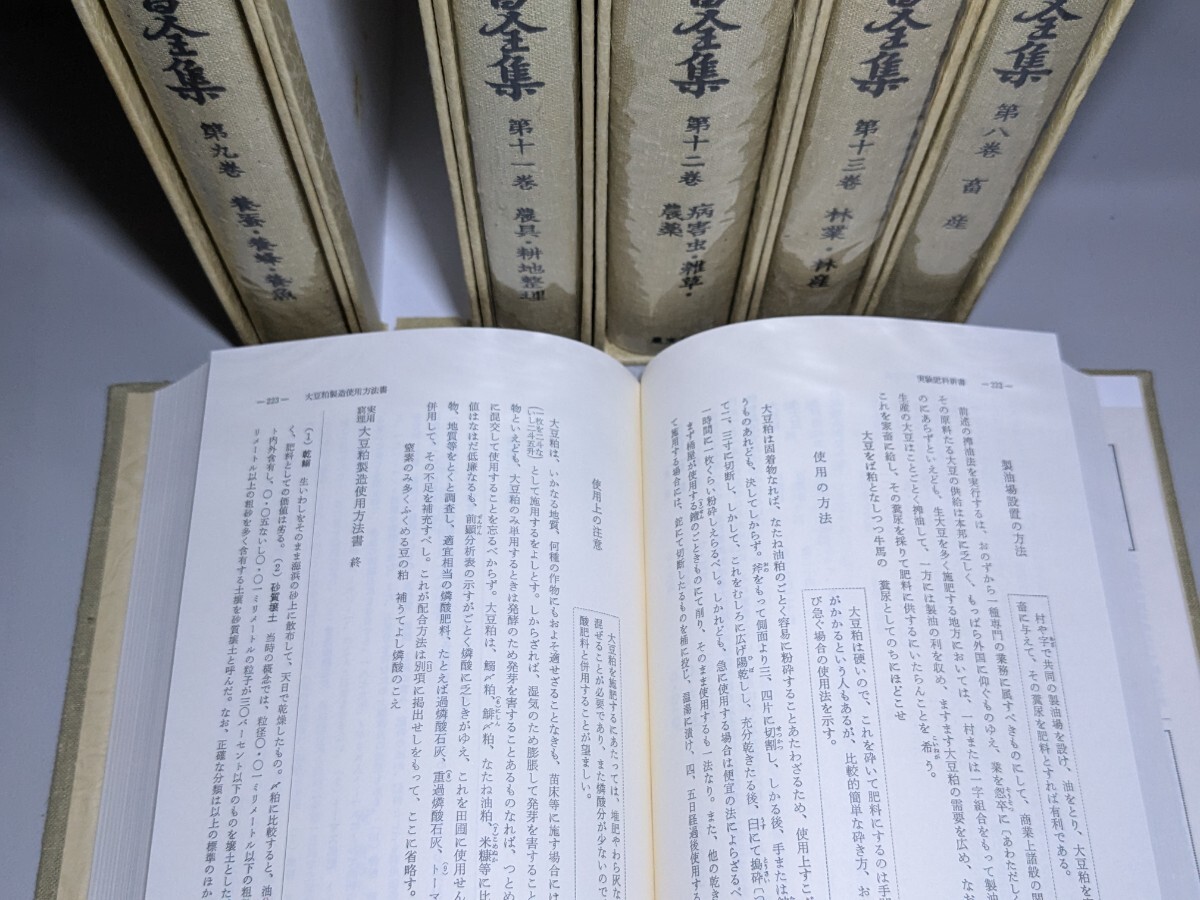 全集
第九巻 養蚕・養蜂・養魚
全集
第十一巻 農具・耕地整理
全集
第十二巻 病害虫・雑草・
農薬
全集
第十三巻 林業・林産
全集
第八巻 畜産
実験肥料新書 ―222―
村や字で共同の製油場を設け、油をとり、大豆粕を
畜に与えて、その糞尿を肥料とすれば有利である。
製油場設置の方法
前述の搾油法を実行するは、おのずから一種専門の業務に属すべきものにして、商業上諸般の関
その原料たる大豆の供給は本邦に乏しく、もっぱら外国に仰ぐものゆえ、業を怱卒に(あわただしく
のにあらずといえども、生大豆を多く施肥する地方においては、一村または一字組合をもって製油
生産の大豆はことごとく搾油して、一方には製油の利を収め、ますます大豆粕の需要を広め、なお
これを家畜に給し、その糞尿を採りて肥料に供するにいたらんことを希う。
大豆をば粕となしつつ牛馬の 糞尿としてのちにほどこせ
大豆粕は硬いので、これを砕いて肥料にするのは手
がかかるという人もあるが、比較的簡単な砕き方、お
び急ぐ場合の使用法を示す。
使用の方法
大豆粕は固着物なれば、なたね油粕のごとく容易に粉砕することあたわざるため、使用上すこぶ
うものあれども、決してしからず。斧をもって側面より三、四片に切割し、しかる後、手または
て二、三寸に切断し、しかして、これをむしろに広げ陽乾しし、充分乾きたる後、臼にて搗砕(つ
一時間に一枚くらい粉砕しえらるべし。しかれども、急に使用する場合は便宜の法によらざるべ
まず桶屋が使用する鐁のごときものにて削り、そのまま使用するも一法なり。また、他の乾き
て施用する場合には、鉈にて切断したるものを桶に投じ、温湯に漬け、四、五日経過後使用する
―223― 大豆粕製造使用方法書
大豆粕を施肥するにあたっては、堆肥やわら灰な
混ぜることが必要であり、また燐酸分が少ないので
酸肥料と併用することが望ましい。
使用上の注意
大豆粕は、いかなる地質、何種の作物にもおよそ適せざることなきも、苗床等に施す場合には
として施用するをよしとす。しからざれば、湿気のため膨脹して発芽を害すること
物といえども、大豆粕のみ単用するときは発酵のため発芽を害することあるものなれば、つとめ
に混交して使用することを忘るべからず。大豆粕は、鰯〆粕、鯡〆粕、なたね油粕、米糠等に比
値はなはだ低廉なるも、前顕分析表の示すがごとく燐酸に乏しきがゆえ、これを田圃に使用せん
物、地質等をとくと調査し、適宜相当の燐酸肥料、たとえば過燐酸石灰、重過燐酸石灰、トーマ
併用して、その不足を補充すべし。これが配合方法は別項に掲出せしをもって、ここに省略す。
窒素のみ多くふくめる豆の粕 補うてよし燐酸のこえ
大豆粕製造使用方法書 終
(1)乾鰯 生いわしをそのまま海浜の砂上に散布して、天日で乾燥したもの。〆粕に比較すると、油
く、肥料としての価値は劣る。 (2)砂質壌土 当時の概念では、粒径〇・〇一ミリメートル以下の
ト内外含有し、〇・〇五ないし〇・〇一ミリメートルの粒子が三〇パーセント以下のものを壌土とした
リメートル以上の粗砂を多く含有する土壌を砂質壌土と呼んだ。なお、正確な分類は以上の標準のほか